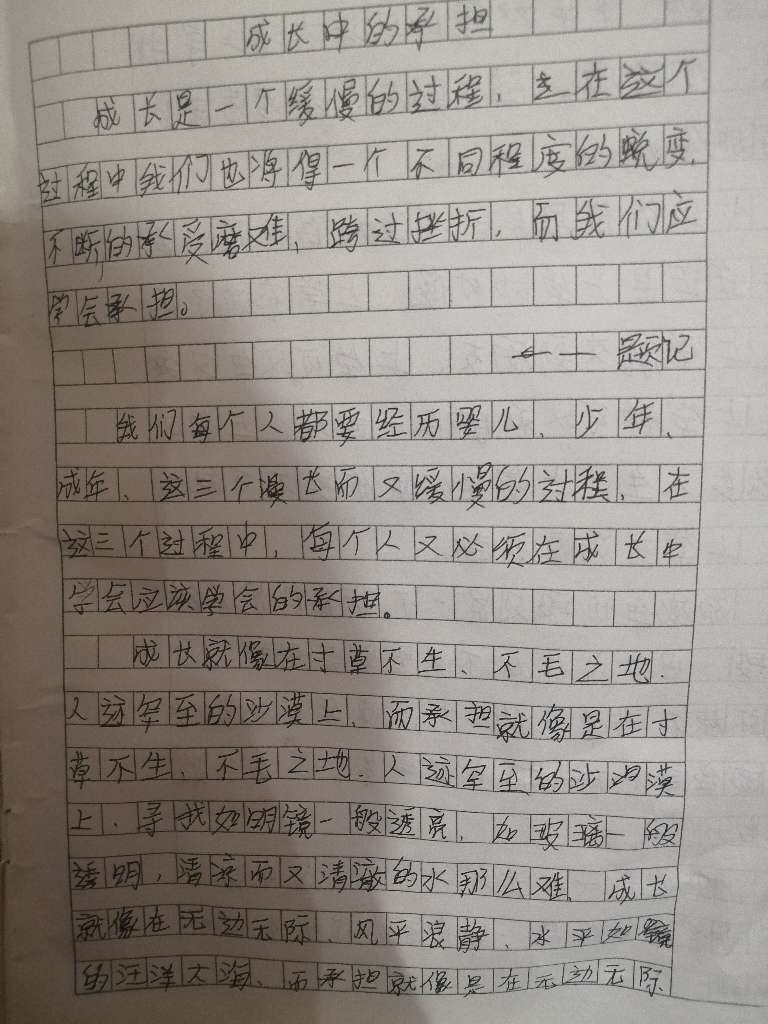 成长中的承担
成长是一个缓慢的过程，在这个
过程中我们也源得一个不同程度的蜕变，
不断的承受磨难，跨过挫折，而我们应
学会承担。
——题记
我们每个人都要经历婴儿、少年、
成年、这三个漫长而又缓慢的过程，在
这三个过程中，每个人又必须在成长中
学会应该学会的承担。
成长就像在寸草不生、不毛之地、
人迹罕至的沙漠上，而承担就像是在寸
草不生、不毛之地、人迹罕至的沙漠
上，寻找如明镜一般透亮，如玻璃一般
透明，清凉而又清澈的水那么难，成长
就像在无动无际、风平浪静、水平如镜
的汪洋大海，而承担就像是在无动无际